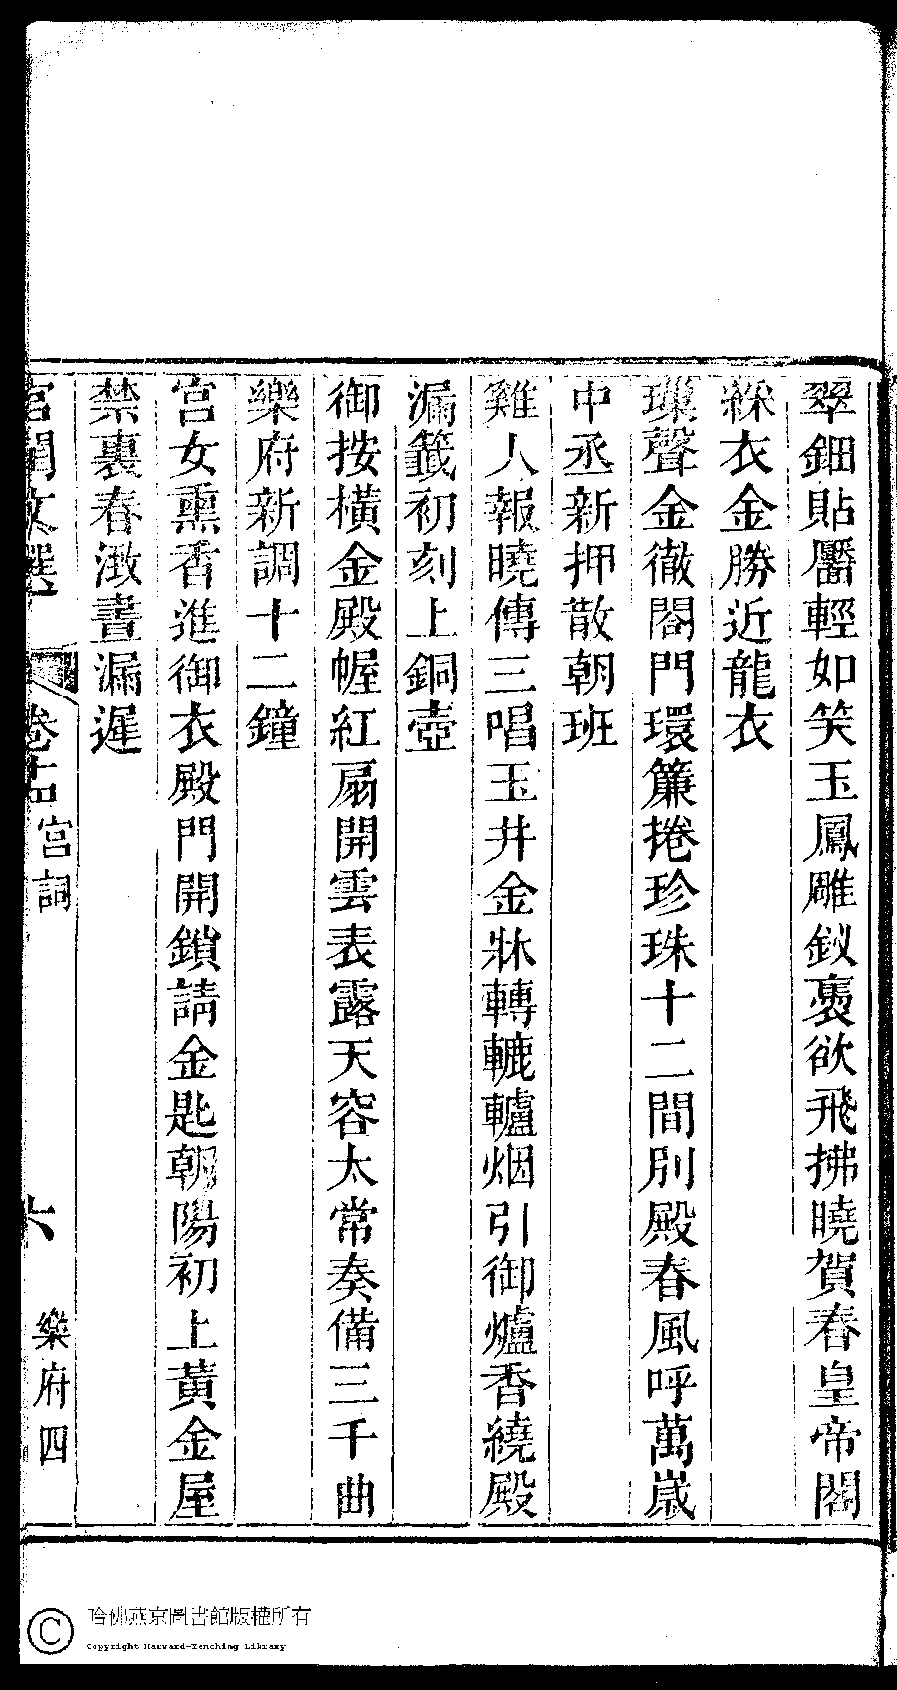 翠鈿貼靨輕如笑玉鳳雕釵裊欲飛拂曉賀春皇帝閣
綵衣金勝近龍衣
環聲金徹閤門環簾捲珍珠十二間別殿春風呼萬歲
中丞新押散朝班
雞人報曉傳三唱玉井金牀轉轆轤烟引御爐香繞殿
漏籤初刻上銅壺
御按橫金殿幄紅扇開雲表露天容太常奏備三千曲
樂府新調十二鐘
宮女熏香進御衣殿門開鎖請金匙朝陽初上黃金屋
禁裏春深晝漏遲
宮閨文選 卷十四 宮詞 六 樂府四
哈佛燕京圖書館版權所有
Copyright Harvard-Yenching Library